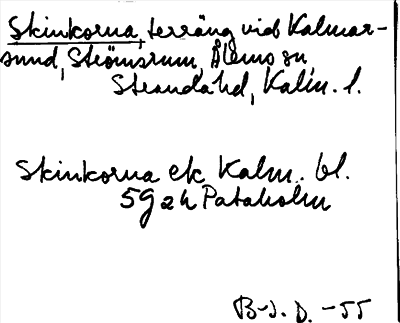 Skinkorna, terräng vid Kalmar-
sund, Strömsrum, Ålems sn,
Stranda hd, Kalm. l.
Skinkorna ek Kalm. bl.
5G 2h Pataholm
B-J. D. -55